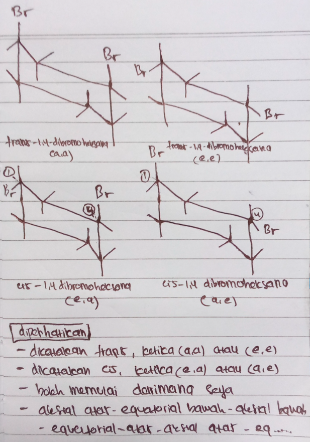 Br
Br
Br
Br
trans-1,4-dibromoheksana
(a,a)
trans-1,4-dibromoheksana
(e,e)
Br
①
Br
Br
④
①
④
Br
cis-1,4 dibromoheksana
(e,a)
cis-1,4 dibromoheksana
(a,e)
diperhatikan
- dikatakan trans, ketika (a,a) atau (e,e)
- dikatakan cis, ketika (e,a) atau (a,e)
- boleh memulai darimana saja
- aksial atas - equatorial bawah - aksial bawah
- equatorial - atas - aksial atas - eq....